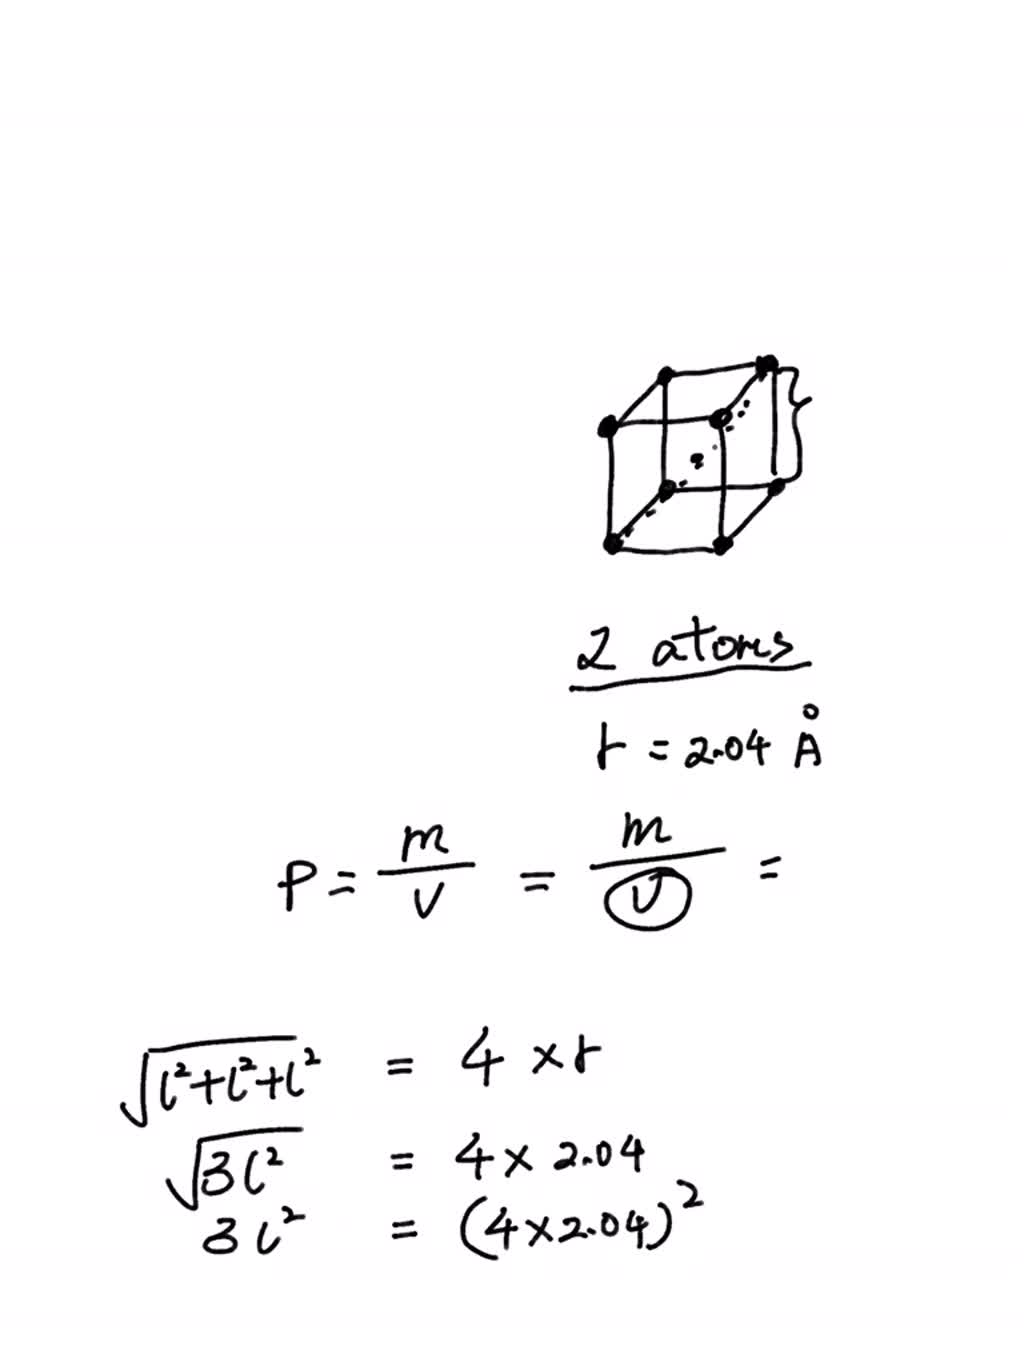 2 atoms
r = 2.04 Å
P = m/V = m/V =
√(l²+l²+l²) = 4 × r
√(3l²) = 4 × 2.04
3l² = (4×2.04)²